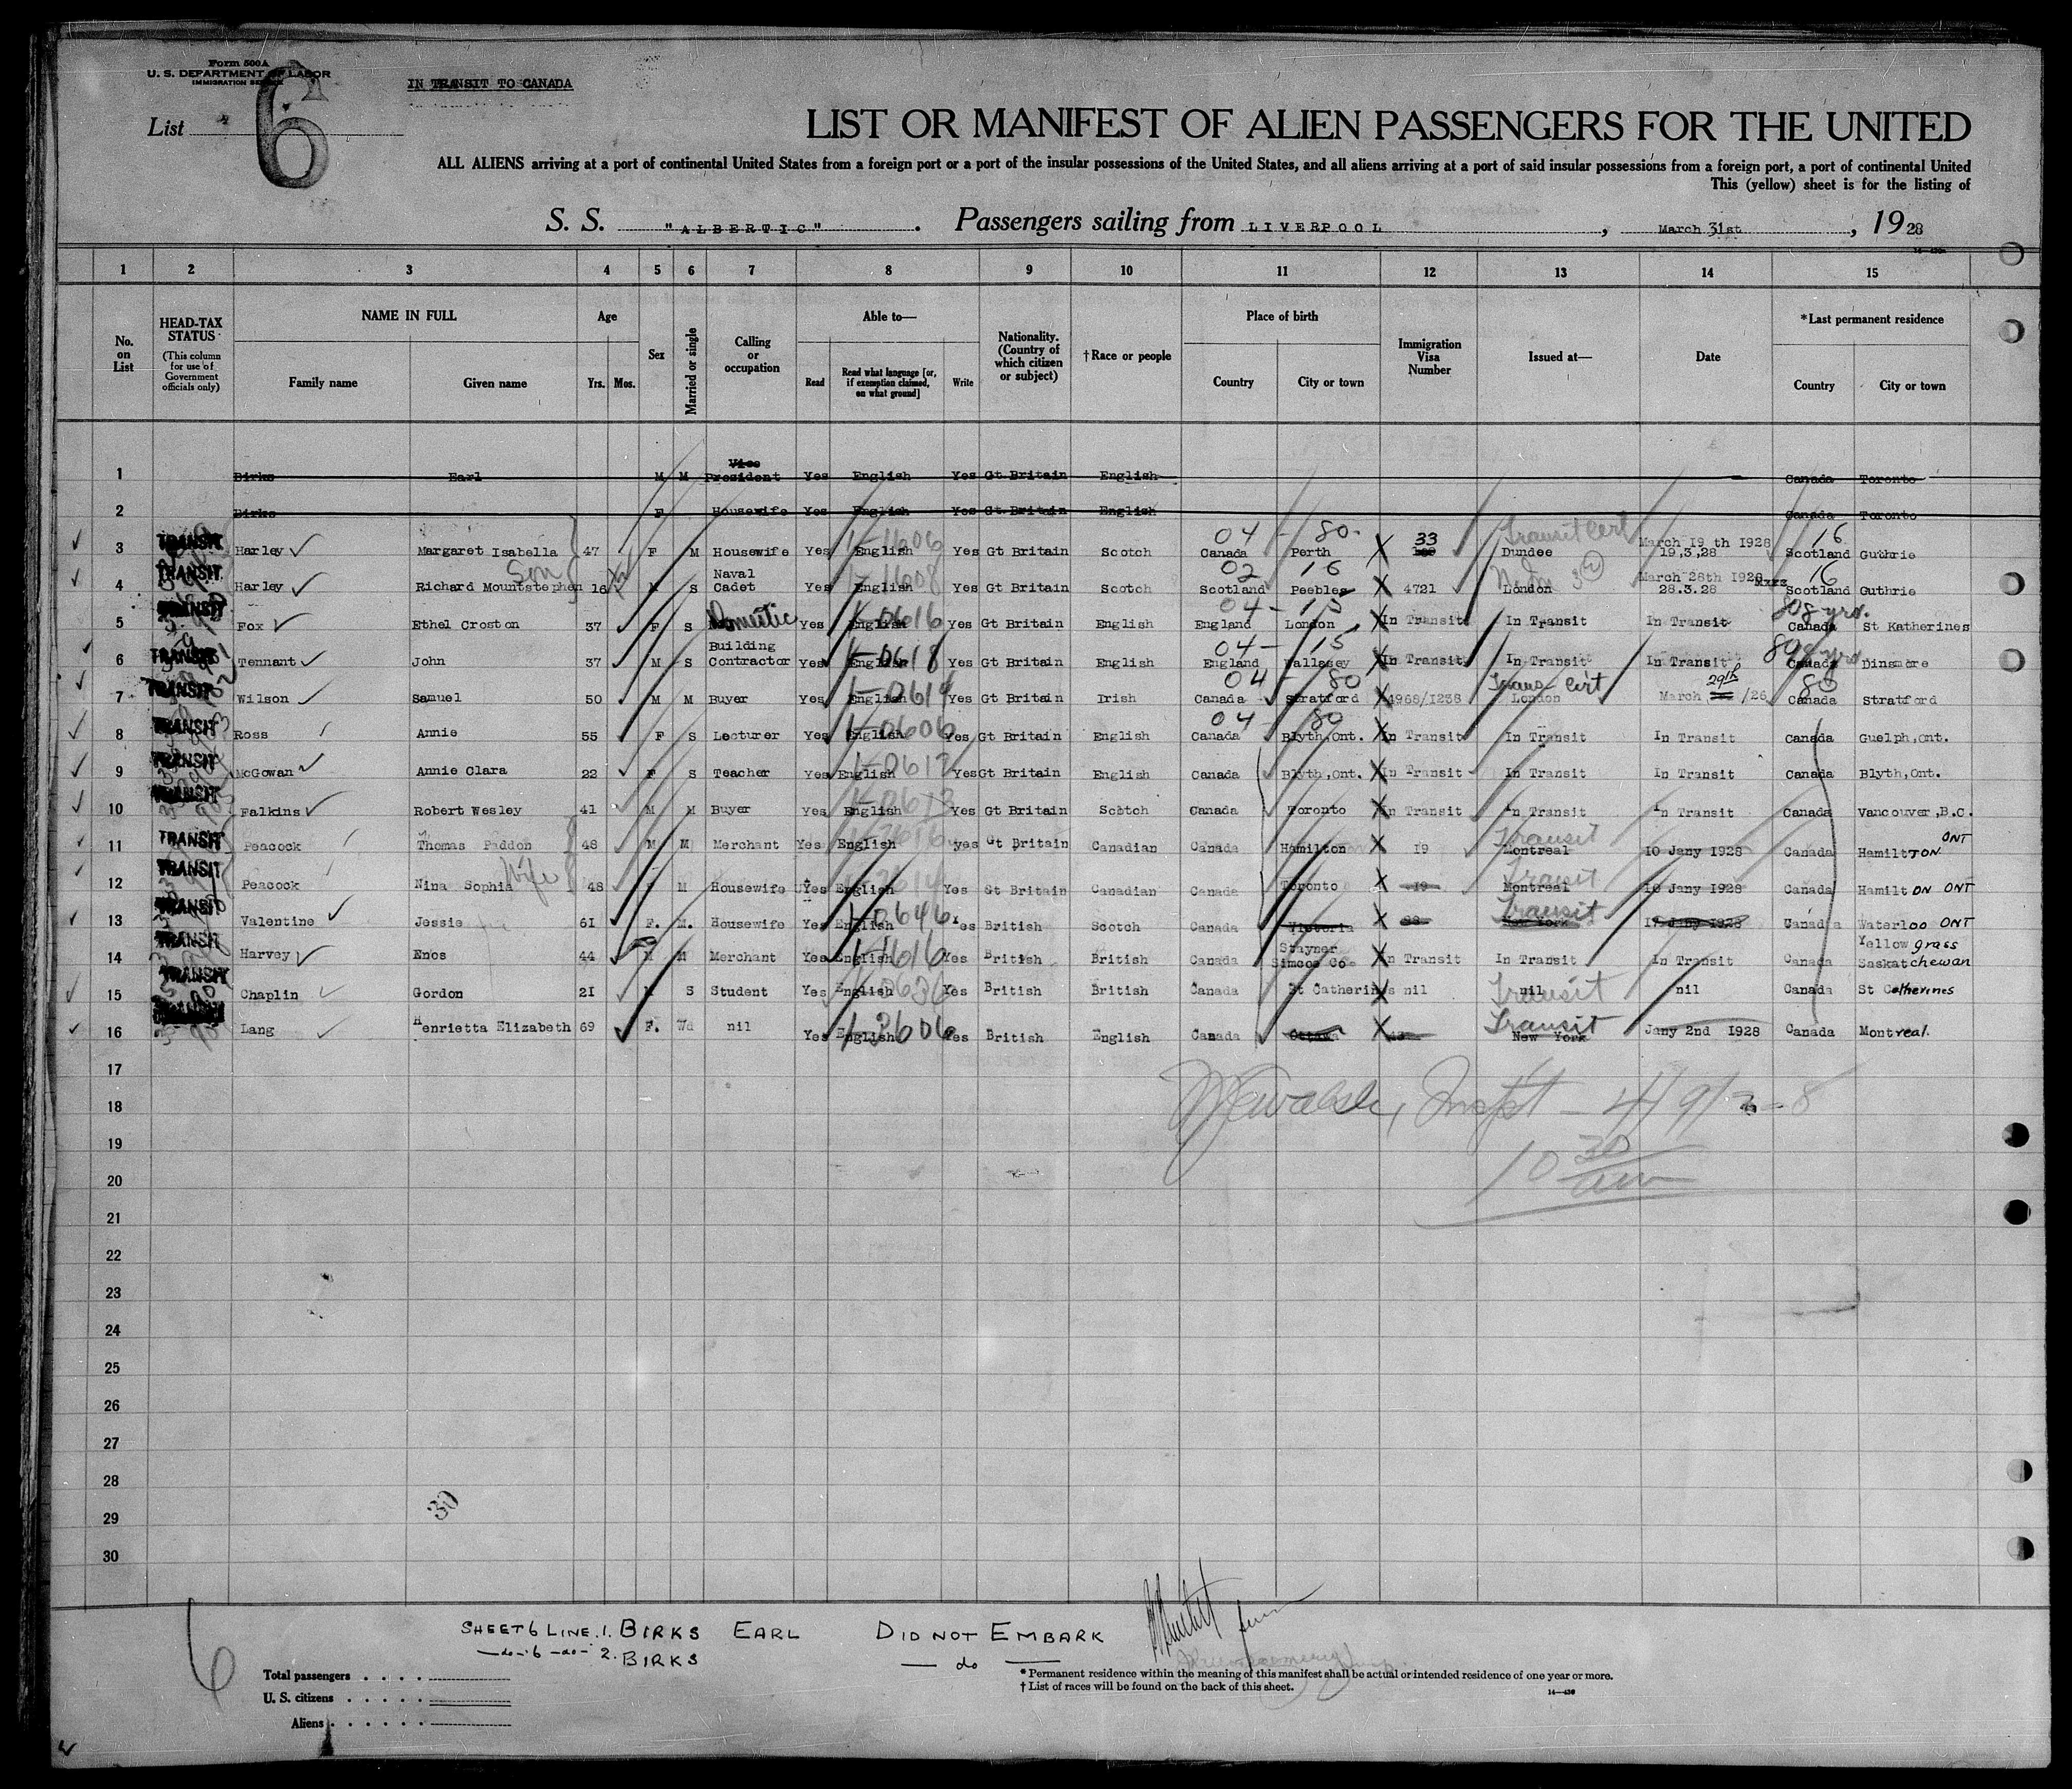 Form 500A
U. S. DEPARTMENT OF LABOR
IMMIGRATION SERVICE
IN TRANSIT TO CANADA
List 6
LIST OR MANIFEST OF ALIEN PASSENGERS FOR THE UNITED
ALL ALIENS arriving at a port of continental United States from a foreign port or a port of the insular possessions of the United States, and all aliens arriving at a port of said insular possessions from a foreign port, a port of continental United
This (yellow) sheet is for the listing of
S. S. "ALBERTIC". Passengers sailing from LIVERPOOL, March 31st, 1928
1 2 3 4 5 6 7 8 9 10 11 12 13 14 15
No. on List
HEAD-TAX STATUS (This column for use of Government officials only)
NAME IN FULL Family name Given name
Age Yrs. Mos.
Sex
Married or single
Calling or occupation
Able to— Read Read what language [or, if exemption claimed, on what ground] Write
Nationality. (Country of which citizen or subject)
†Race or people
Place of birth Country City or town
Immigration Visa Number
Issued at—
Date
*Last permanent residence Country City or town
1 Birks Earl M M Vice President Yes English Yes Gt Britain English Canada Toronto
2 Birks F Housewife Yes English Yes Gt Britain English Canada Toronto
04 - 80 33 Transit Cert March 19 th 1928 16
3 TRANSIT Harley Margaret Isabella 47 F M Housewife Yes English Yes Gt Britain Scotch Canada Perth Dundee 19.3.28 Scotland Guthrie
Son Naval 02 16 March 28th 1928 16
4 TRANSIT Harley Richard Mountstephen 16 M S Cadet Yes English Yes Gt Britain Scotch Scotland Peebles 4721 London 28.3.28 Scotland Guthrie
04 - 15
5 TRANSIT Fox Ethel Croston 37 F S Domestic Yes English Yes Gt Britain English England London In Transit In Transit In Transit Canada St Katherines
Building 04 - 15
6 TRANSIT Tennant John 37 M S Contractor Yes English Yes Gt Britain English England Wallasey In Transit In Transit In Transit Canada Dinsmore
04 - 80 Trans Cert 29th 80
7 TRANSIT Wilson Samuel 50 M M Buyer Yes English Yes Gt Britain Irish Canada Stratford 4968/1238 London March /28 Canada Stratford
04 - 80
8 TRANSIT Ross Annie 55 F S Lecturer Yes English Yes Gt Britain English Canada Blyth,Ont. In Transit In Transit In Transit Canada Guelph,Ont.
9 TRANSIT McGowan Annie Clara 22 F S Teacher Yes English Yes Gt Britain English Canada Blyth,Ont. In Transit In Transit In Transit Canada Blyth,Ont.
10 TRANSIT Falkins Robert Wesley 41 M M Buyer Yes English Yes Gt Britain Scotch Canada Toronto In Transit In Transit In Transit Canada Vancouver,B.C.
11 TRANSIT Peacock Thomas Paddon 48 M M Merchant Yes English yes Gt Britain Canadian Canada Hamilton 19 Transit Montreal 10 Jany 1928 Canada HamilTON ONT
12 TRANSIT Peacock Nina Sophia Wife 48 M Housewife Yes English Yes Gt Britain Canadian Canada Toronto 19 Transit Montreal 10 Jany 1928 Canada Hamilton ONT
13 TRANSIT Valentine Jessie 61 F. M. Housewife Yes English Yes British Scotch Canada Victoria Transit New York Jany 1928 Canada Waterloo ONT
14 TRANSIT Harvey Enos 44 M M Merchant Yes English Yes British British Canada Stayner Simcoe Co In Transit In Transit In Transit Canada Yellow grass Saskatchewan
15 TRANSIT Chaplin Gordon 21 M S Student Yes English Yes British British Canada St Catherines nil nil Transit nil Canada St Catherines
16 Lang Henrietta Elizabeth 69 F. Wd nil Yes English Yes British English Canada Ottawa Transit New York Jany 2nd 1928 Canada Montreal
17
18 Inspt - 4/9/28
19 10 30
20 am
21
22
23
24
25
26
27
28
29 30
30
6
SHEET 6 LINE. 1. BIRKS EARL DID NOT EMBARK
-do- 6 -do- 2. BIRKS — do —
Total passengers
U. S. citizens
Aliens
* Permanent residence within the meaning of this manifest shall be actual or intended residence of one year or more.
† List of races will be found on the back of this sheet.
14—430